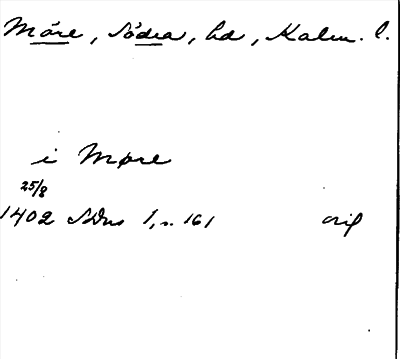 Möre, Södra, hd, Kalm. l.
i Møre
25/8
1402 SDns 1, s. 161 orig